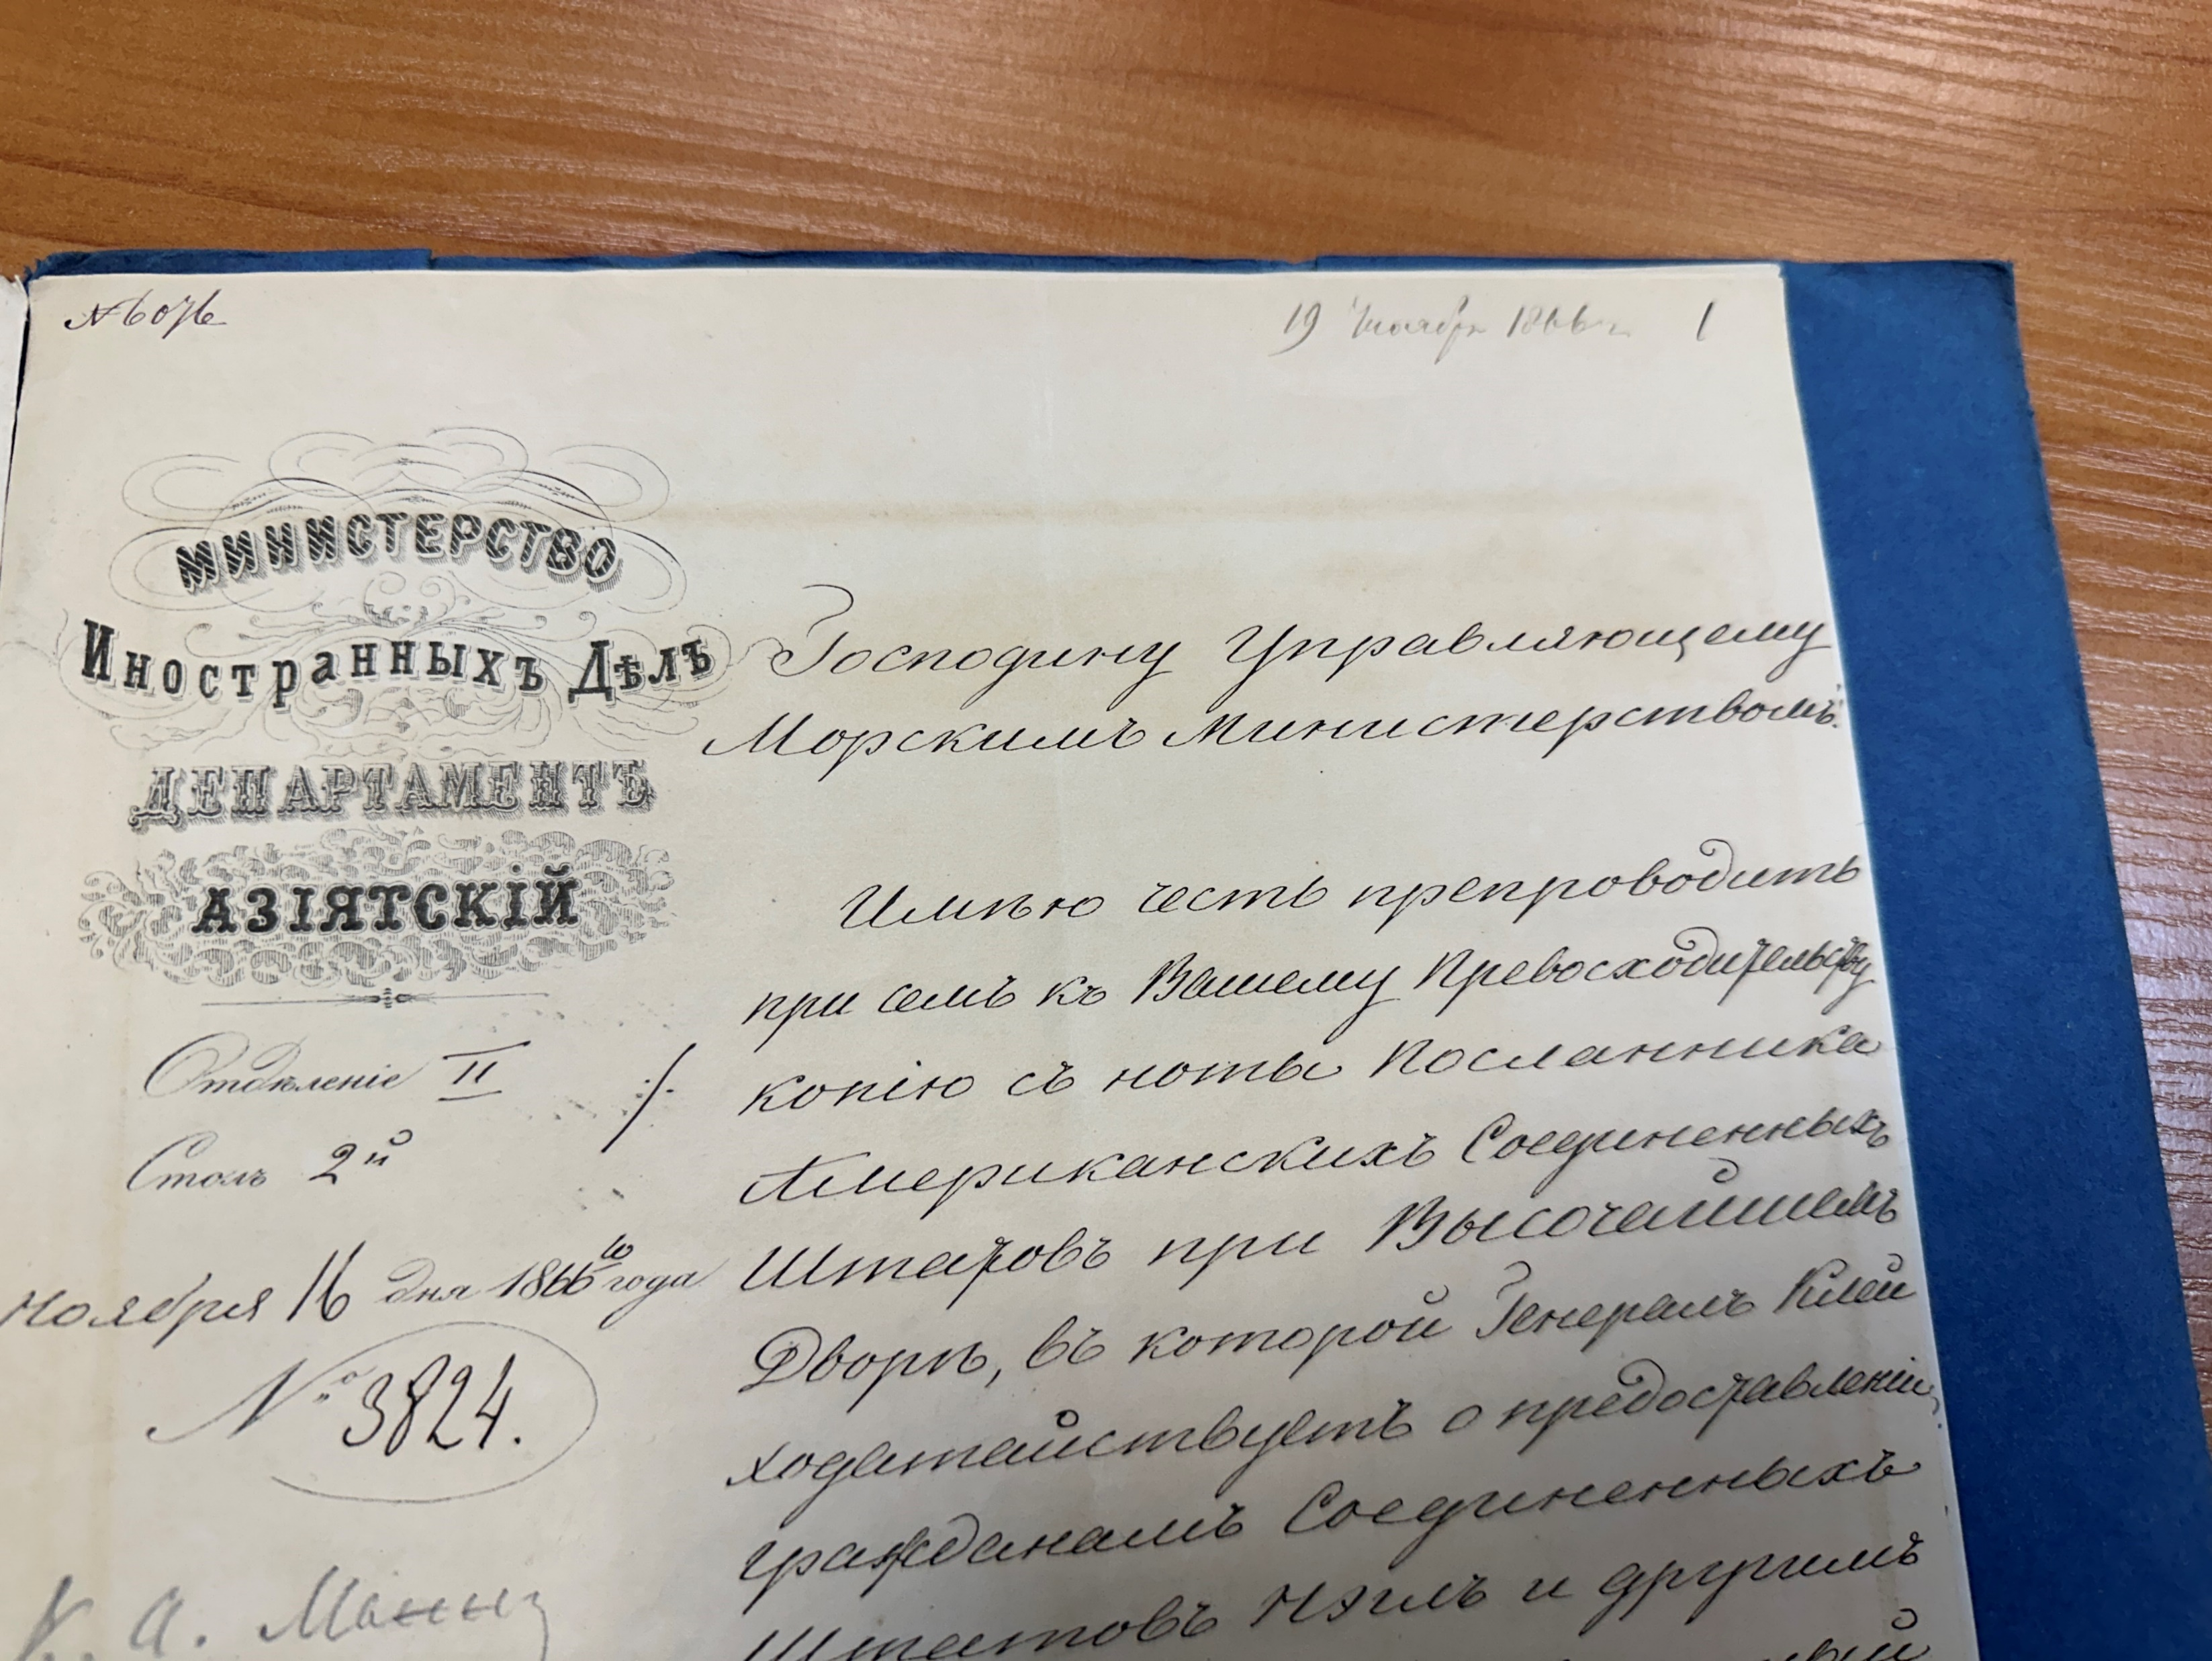 № 6076
19 Ноября 1866 г. 1
МИНИСТЕРСТВО
Иностранныхъ Дѣлъ
ДЕПАРТАМЕНТЪ
АЗІЯТСКІЙ
Отдѣленіе II
Столъ 2й
Ноября 16 дня 1866го года
№ 3824.
К. А. Манну
Господину Управляющему
Морскимъ Министерствомъ.
Имѣю честь препроводить
при семъ къ Вашему Превосходительству
копію съ ноты Посланника
Американскихъ Соединенныхъ
Штатовъ при Высочайшемъ
Дворѣ, въ которой Генералъ Клей
ходатайствуетъ о предоставленіи
гражданамъ Соединенныхъ
Штатовъ и другимъ